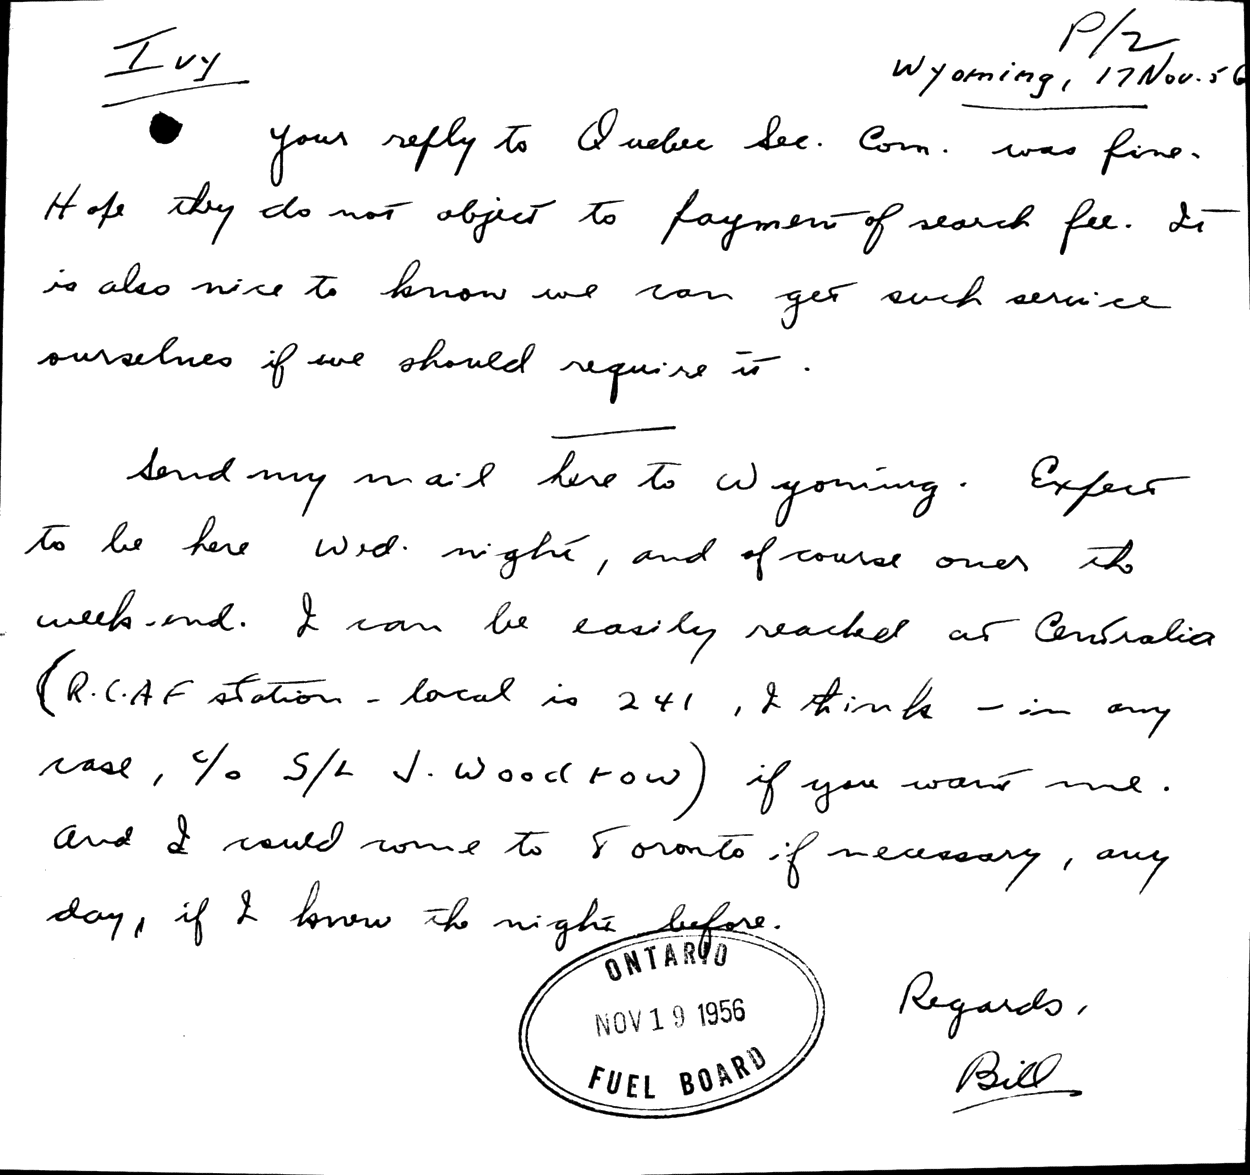 Ivy
P/2
Wyoming, 17 Nov. 56
Your reply to Quebec Sec. Com. was fine.
Hope they do not object to payment of search fee. It
is also nice to know we can get such service
ourselves if we should require it.
Send my mail here to Wyoming. Expect
to be here Wed. night, and of course over the
week-end. I can be easily reached at Centralia
(R.C.A.F station - local is 241, I think - in any
case, c/o S/L J. Woodrow) if you want me.
And I could come to Toronto if necessary, any
day, if I knew the night before.
ONTARIO
NOV 19 1956
FUEL BOARD
Regards,
Bill